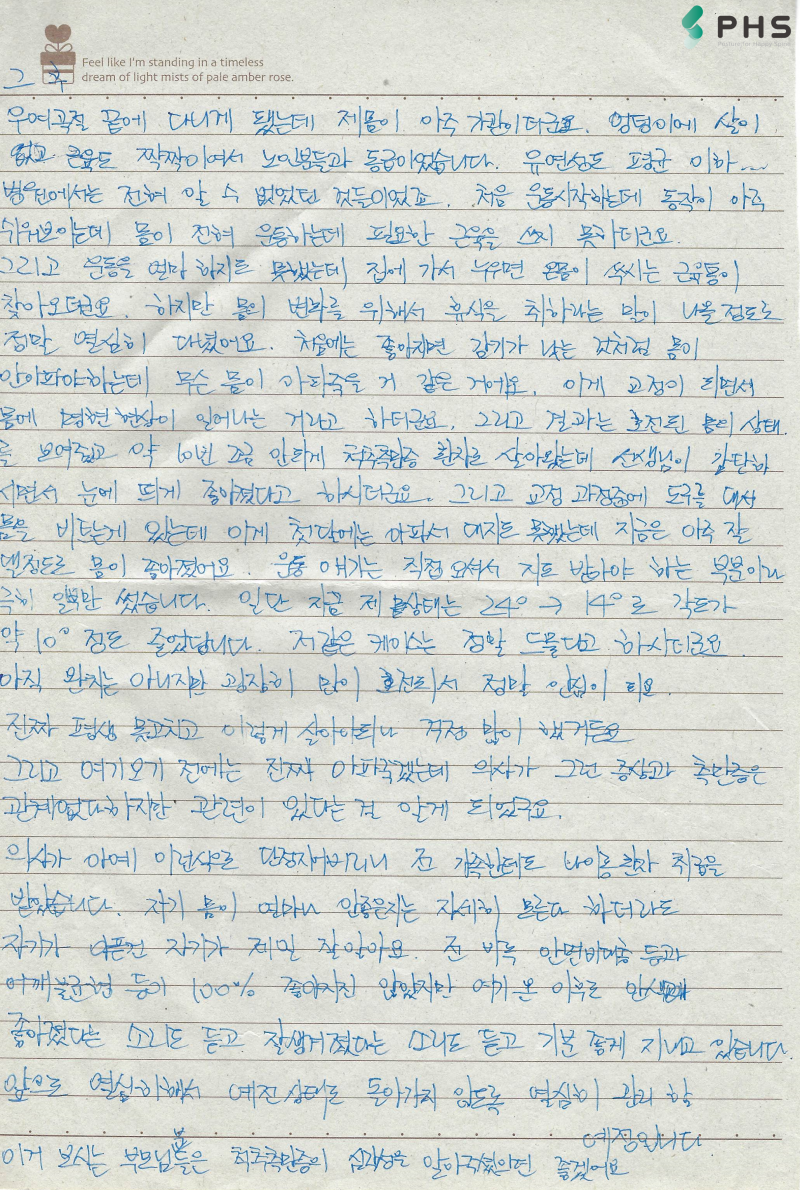 PHS
Feel like I'm standing in a timeless
dream of light mists of pale amber rose.
그 후
우여곡절 끝에 다니게 됐는데 제몸이 아주 가관이더군요. 엉덩이에 살이
없고 근육도 짝짝이여서 노인분들과 동급이었습니다. 유연성도 평균 이하...
병원에서는 전혀 알 수 없었던 것들이였죠. 처음 운동시작하는데 동작이 아주
쉬워보이는데 몸이 전혀 운동하는데 필요한 근육을 쓰지 못하더군요.
그리고 운동을 얼마 하지도 못했는데 집에 가서 누우면 온몸이 쑤시는 근육통이
찾아오더군요. 하지만 몸의 변화를 위해서 휴식을 취하라는 말이 나올정도로
정말 열심히 다녔어요. 처음에는 좋아지면 감기가 낫는 것처럼 몸이
안아파야하는데 무슨 몸이 아파죽을 거 같은 거에요. 이게 교정이 되면서
몸에 명현현상이 일어나는 거라고 하더군요. 그리고 결과는 호전된 몸의 상태
를 보여줬고 약 10년 조금 안되게 척추측만증 환자로 살아왔는데 선생님이 감탄하
시면서 눈에 띄게 좋아졌다고 하시더군요. 그리고 교정 과정중에 도구를 대서
몸을 비트는게 있는데 이게 첫달에는 아파서 대지도 못했는데 지금은 아주 잘
댈정도로 몸이 좋아졌어요. 운동 얘기는 직접 오셔서 지도 받아야 하는 부분이라
극히 일부만 썼습니다. 일단 지금 제 상태는 24° → 14°로 각도가
약 10° 정도 줄었답니다. 저같은 케이스는 정말 드물다고 하시더군요
아직 완치는 아니지만 굉장히 많이 호전되서 정말 안심이 되요.
진짜 평생 못고치고 이렇게 살아야되나 걱정 많이 했거든요
그리고 여기오기 전에는 진짜 아파죽겠는데 의사가 그런 증상과 측만증은
관계없다하지만 관련이 있다는 걸 알게 되었구요.
의사가 아예 이런식으로 단정지어버리니 전 가족한테도 나이롱환자 취급을
받았습니다. 자기 몸이 얼마나 안좋은지는 자세히 모른다 하더라도
자기가 아픈건 자기가 제일 잘알아요. 전 비록 안면비대칭 등과
어깨불균형 등이 100% 좋아지진 않았지만 여기 온 이후로 인상이
좋아졌다는 소리도 듣고 잘생겨졌다는 소리도 듣고 기분 좋게 지내고 있습니다.
앞으로 열심히해서 예전상태로 돌아가지 않도록 열심히 관리 할
예정입니다
이거 보시는 부모님분들은 척추측만증의 심각성을 알아주셨으면 좋겠어요